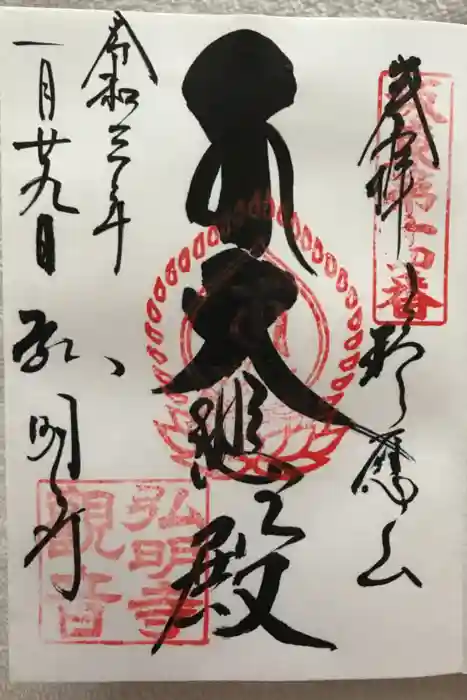 奉拝 瑞應山
坂東第十四番
大悲殿
令和三年
一月廿九日 弘明寺
弘明寺
觀音